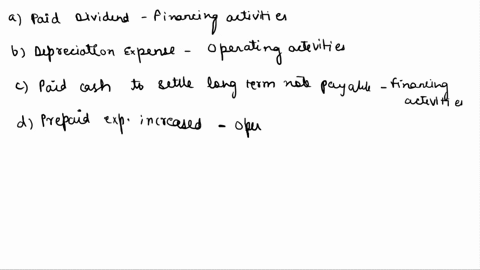 a) Paid Dividend - Financing activities
b) Depreciation Expense - Operating activities
c) Paid cash to settle long term note payable - Financing
activities
d) Prepaid exp. increased - Oper